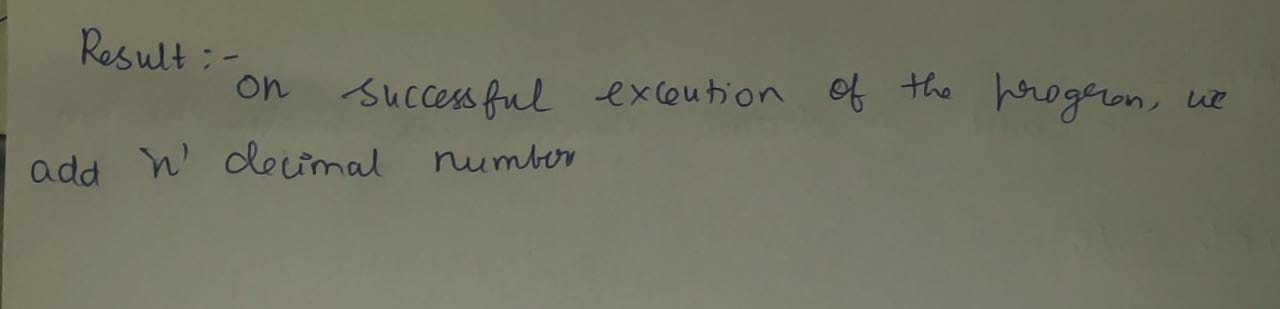 Result :-
on successful excution of the progeron, we
add 'n' decimal number